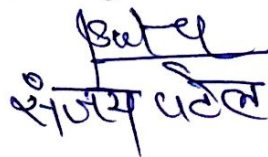 संजय पटेल